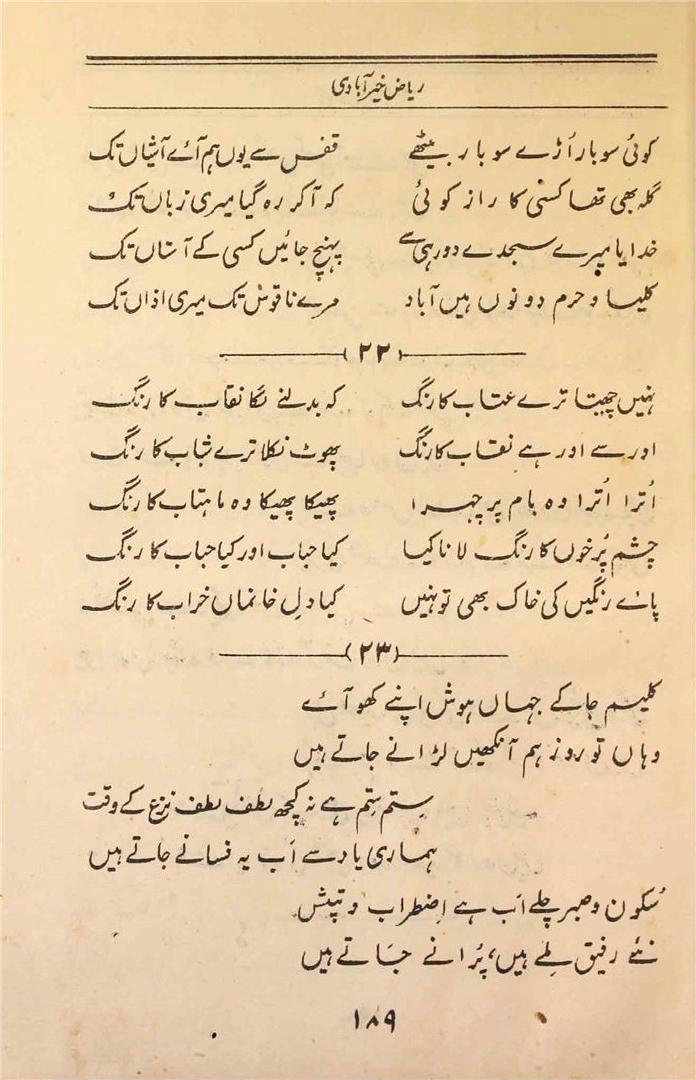 ریاض خیرآبادی
کوئی سو بار اُڑے سو بار بیٹھے قفس سے یوں ہم آئے آشیاں تک
گلہ بھی تھا کسی کا راز کوئی کہ آکر رہ گیا میری زباں تک
خدایا میرے سجدے دور ہی سے پہنچ جائیں کسی کے آستاں تک
کلیسا و حرم دونوں ہیں آباد مرے ناقوس تک میری اذاں تک
(۲۲)
نہیں چھپتا ترے عتاب کا رنگ کہ بدلنے لگا نقاب کا رنگ
اور سے اور ہے نقاب کا رنگ پھوٹ نکلا ترے شباب کا رنگ
اُترا اُترا وہ بام پر چہرا پھیکا پھیکا وہ ماہتاب کا رنگ
چشم پُرخوں کا رنگ لانا کیا کیا حباب اور کیا حباب کا رنگ
پائے رنگیں کی خاک بھی تو نہیں کیا دلِ خانماں خراب کا رنگ
(۲۳)
کلیم جا کے جہاں ہوش اپنے کھو آئے
وہاں تو روز ہم آنکھیں لڑانے جاتے ہیں
ستم ستم ہے نہ کچھ لطف لطف نزع کے وقت
ہماری یاد سے اَب یہ فسانے جاتے ہیں
سُکون و صبر چلے اَب ہے اِضطراب و تپش
نئے رفیق ملے ہیں، پُرانے جاتے ہیں
۱۸۹